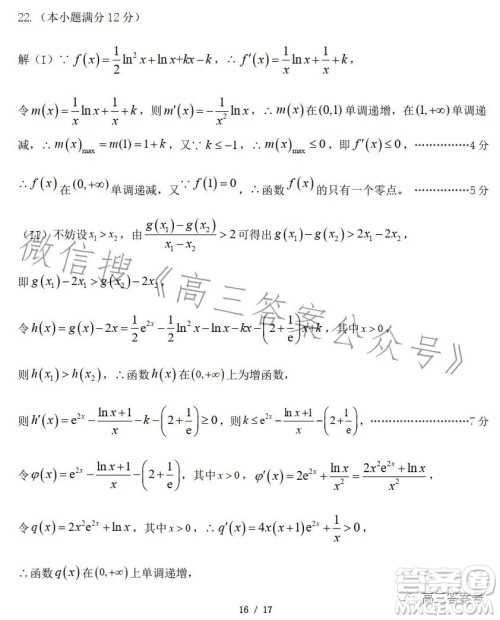 22.（本小题满分12分）
解（I）∵ f(x)=1/2 ln²x+lnx+kx−k，∴ f′(x)=1/x lnx+1/x+k，
令 m(x)=1/x lnx+1/x+k，则 m′(x)=−1/x² lnx，∴ m(x) 在(0,1)单调递增，在(1,+∞)单调递
减，∴ m(x)max=m(1)=1+k，又∵ k≤−1，∴ m(x)max≤0，即 f′(x)≤0，……………4分
∴ f(x) 在(0,+∞)单调递减，又∵ f(1)=0，∴函数 f(x) 的只有一个零点。……………5分
（II）不妨设 x₁>x₂，由 (g(x₁)−g(x₂))/(x₁−x₂)>2 可得出 g(x₁)−g(x₂)>2x₁−2x₂，
即 g(x₁)−2x₁>g(x₂)−2x₂，
令 h(x)=g(x)−2x=1/2 e^(2x)−1/2 ln²x−lnx−kx−(2+1/e)x+k，其中 x>0，
则 h(x₁)>h(x₂)，∴函数 h(x) 在(0,+∞)上为增函数，
则 h′(x)=e^(2x)−(lnx+1)/x−k−(2+1/e)≥0，则 k≤e^(2x)−(lnx+1)/x−(2+1/e)，…………………………7分
令 φ(x)=e^(2x)−(lnx+1)/x−(2+1/e)，其中 x>0，φ′(x)=2e^(2x)+lnx/x²=(2x²e^(2x)+lnx)/x²，
令 q(x)=2x²e^(2x)+lnx，其中 x>0，∴ q′(x)=4x(x+1)e^(2x)+1/x>0，
∴函数 q(x) 在(0,+∞)上单调递增，
16 / 17
微信搜《高三答案公众号》
高三答案号
答案圈
MXQE.COM